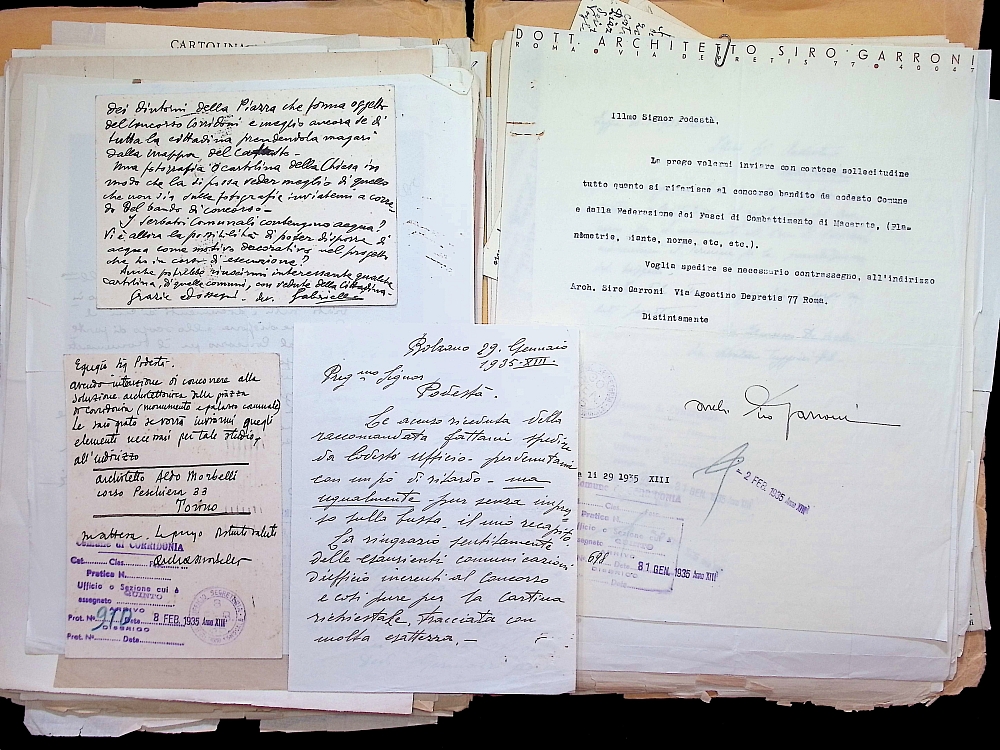 CARTOLINA
dei dintorni della Piazza che forma oggetto
del concorso Corridoni e meglio ancora se di
tutta la cittadina prendendola magari
dalla mappa del
Una fotografia o cartolina della Chiesa in
modo che la si possa veder meglio di quello
che non sia dalla fotografia inviatami a corre-
do del bando di concorso -
I serbatoi Comunali contengono acqua?
Vi è allora la possibilità di poter disporre di
acqua come motivo decorativo nel progetto
che ho in corso di esecuzione?
Anche potrebbe riuscirmi interessante qualche
cartolina, di quelle comuni, con vedute della cittadina.
Grazie ed ossequi. dev. Gabrielle
Egregio Sig. Podestà.
avendo intenzione di concorrere alla
soluzione architettonica della piazza
di Corridonia (monumento e palazzo comunale)
Le sarò grato se vorrà inviarmi quegli
elementi necessari per tale studio,
all'indirizzo
architetto Aldo Morbelli
corso Peschiera 33
Torino
Comune di CORRIDONIA
Cat. Clas.
Pratica N.
Ufficio o Sezione cui è
assegnato QUINTO
ARRIVO
Prot. N° 970 Data 8 FEB. 1935 Anno XIII
Prot. N° Data
Bolzano 29. Gennaio
1935-XIII-
Preg.mo Signor
Podestà.
Le accuso riceduta della
raccomandata fattami spedire
da Codesto Ufficio - perdenutami
con un pò di ritardo - ma
ugualmente - pur senza impres-
so sulla busta il mio recapito.
La ringrazio sentitamente
delle esaurienti comunicazioni
d'ufficio inerenti al Concorso
e così pure per la cartina
richiestale, tracciata con
molta esattezza. -
DOTT. ARCHITETTO SIRO GARRONI
ROMA • VIA DEPRETIS 77 • 40047
Illmo Signor Podestà,
La prego volermi inviare con cortese sollecitudine
tutto quanto si riferisce al concorso bandito da codesto Comune
e dalla Federazione dei Fasci di Combattimento di Macerata, (Pla-
nimetrie, piante, norme, etc, etc.).
Voglia spedire se necessario contrassegno, all'indirizzo
Arch. Siro Garroni Via Agostino Depretis 77 Roma.
Distintamente
Siro Garroni
2 FEB. 1935 Anno XIII
li 29 1935 XIII
Pratica N.
698
31 GEN. 1935 Anno XIII